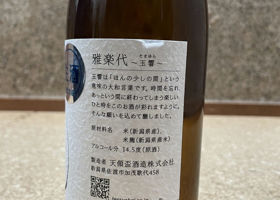 酒
雅楽代
たまゆら
〜玉響〜
玉響は「ほんの少しの間」という
意味の大和言葉です。時間を忘れ、
あっという間に終わってしまう楽しい
ひと時をこのお酒が彩れますように。
そんな願いを込めて醸しました。
原材料 米(新潟県産)、
米麹(新潟県産米)
アルコール分 14.5度(原酒)
製造者 天領盃酒造株式会社
新潟県佐渡市加茂歌代458